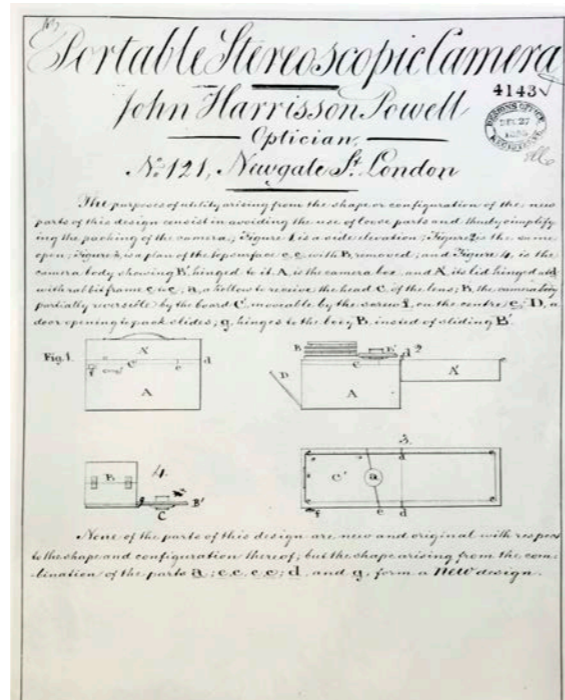 Portable Stereoscopic Camera
4143
John Harrisson Powell
DESIGNS OFFICE
DEC 27
REGISTERED
Optician,
No. 121, Newgate St. London
The purposes of utility arising from the shape or configuration of the new
parts of this design consist in avoiding the use of loose parts and thereby simplify
ing the packing of the camera; Figure 1 is a side elevation; Figure 2 is the same
open; Figure 3, is a plan of the top surface c c with B removed; and Figure 4. is the
camera body showing B' hinged to it. A is the camera box, and A' its lid hinged at d
with rabbit frame c c; a, a hollow to receive the head C of the lens; B, the camera body
partially reversible by the board C' moveable by the screw f, on the centre e; D, a
door opening to pack slides; g, hinges to the body B, insted of sliding B'
Fig. 1.
A'
d
C'
e
f
A
B
B'
d
2
c
D
A
A'
4.
B
g
B'
C
3.
d
C'
a
f
e
d
None of the parts of this design are new and original with respect
to the shape and configuration thereof; but the shape arising from the com-
bination of the parts a; c c, e e; d, and g, form a new design.